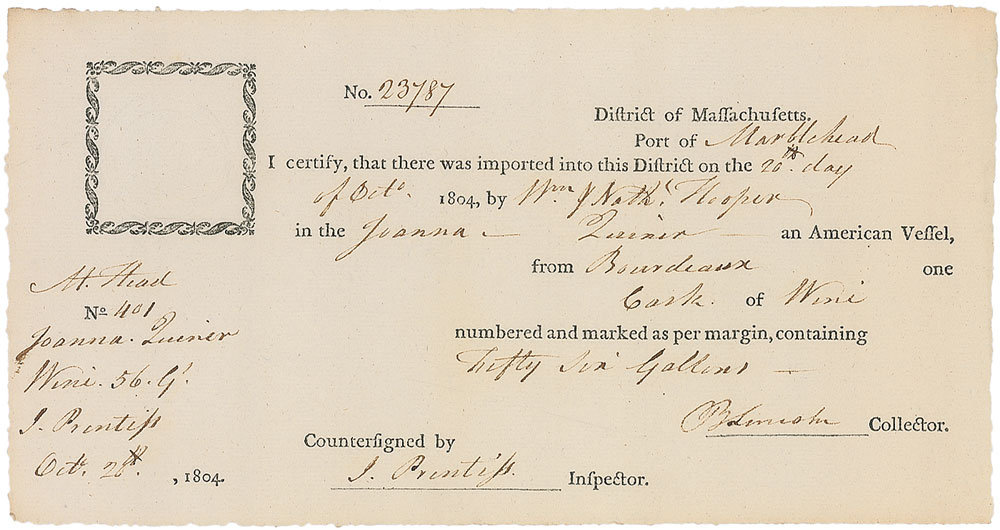 No. 23787
Diſtrict of Maſſachuſetts.
Port of Marblehead
I certify, that there was imported into this Diſtrict on the 20th. day
of Octo. 1804, by Wm & Nathl. Hooper
in the Joanna — Quiner — an American Veſſel,
from Bourdeaux one
Cask. of Wine
numbered and marked as per margin, containing
Fifty Six Gallons —
B Lincoln Collector.
Counterſigned by
J. Prentiſs. Inſpector.
M. Head
No 401
Joanna. Quiner
Wine. 56. Gs.
J. Prentiſs
Octr. 20th. , 1804.